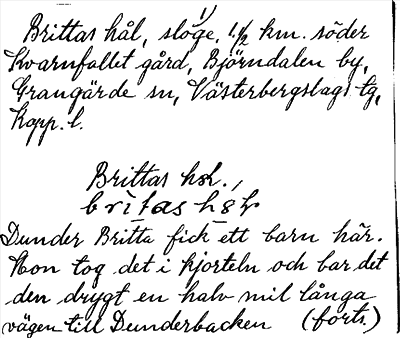 Brittas hål, slåge, 1 1/2 km. söder
Kvarnfallet gård, Björndalen by,
Grangärde sn, Västerbergslags tg,
Kopp. l.
Brittas hsk.,
britas hsk
Dunder Britta fick ett barn här.
Hon tog det i kjorteln och bar det
den drygt en halv mil långa
vägen till Dunderbacken (forts.)